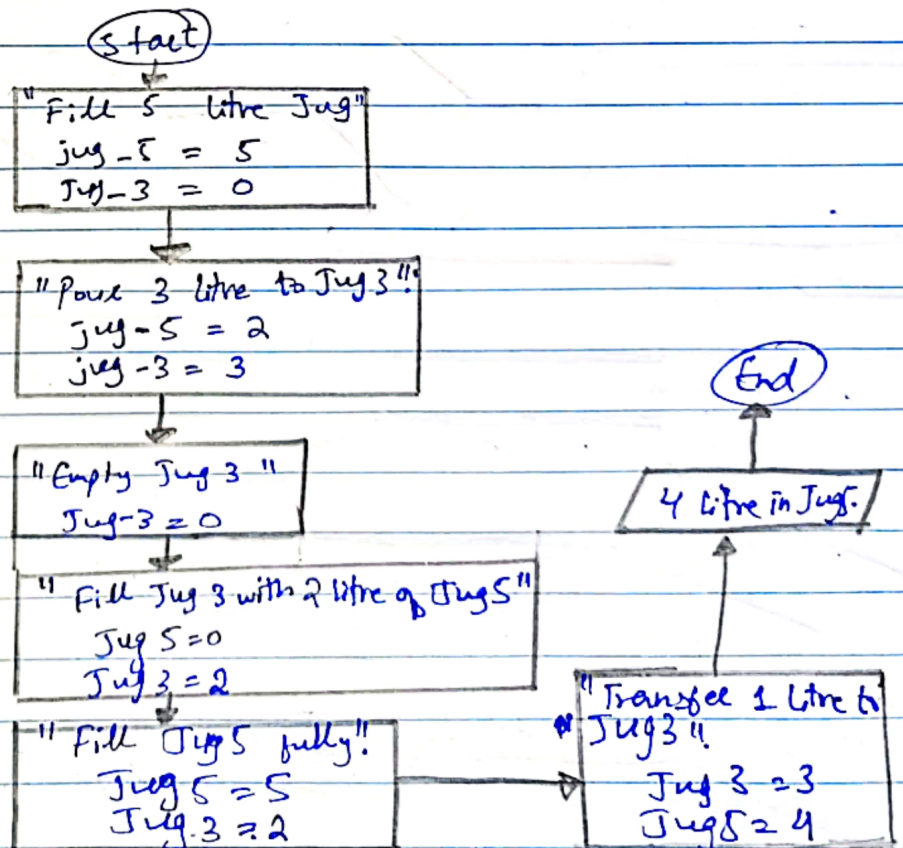 Start
"Fill 5 litre Jug"
jug-5 = 5
Jug-3 = 0
"Pour 3 litre to Jug3".
jug-5 = 2
jug-3 = 3
"Empty Jug 3"
Jug-3 = 0
"Fill Jug 3 with 2 litre of Jug5"
Jug 5=0
Jug 3 = 2
"Fill Jug5 fully"
Jug 5 = 5
Jug.3 = 2
"Transfer 1 Litre to
Jug3".
Jug 3 = 3
Jug5 = 4
4 Litre in Jug5.
End